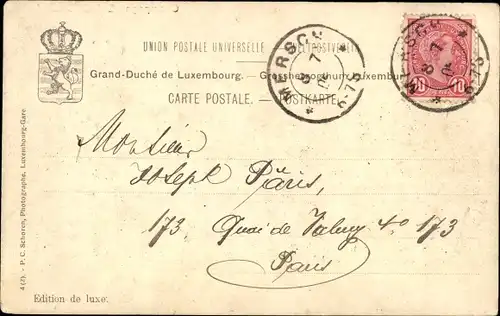 UNION POSTALE UNIVERSELLE. — WELTPOSTVEREIN.
Grand-Duché de Luxembourg. — Grossherzogtum Luxemburg
CARTE POSTALE. — POSTKARTE
MERSCH
8 7
6-7S
MERSCH
8 7
6-7S
10 10
Monsieur
Joseph Pâris,
173, Quai de Valmy No 173
Paris
4 (3). - P. C. Schoren, Photographe, Luxembourg-Gare.
Edition de luxe.